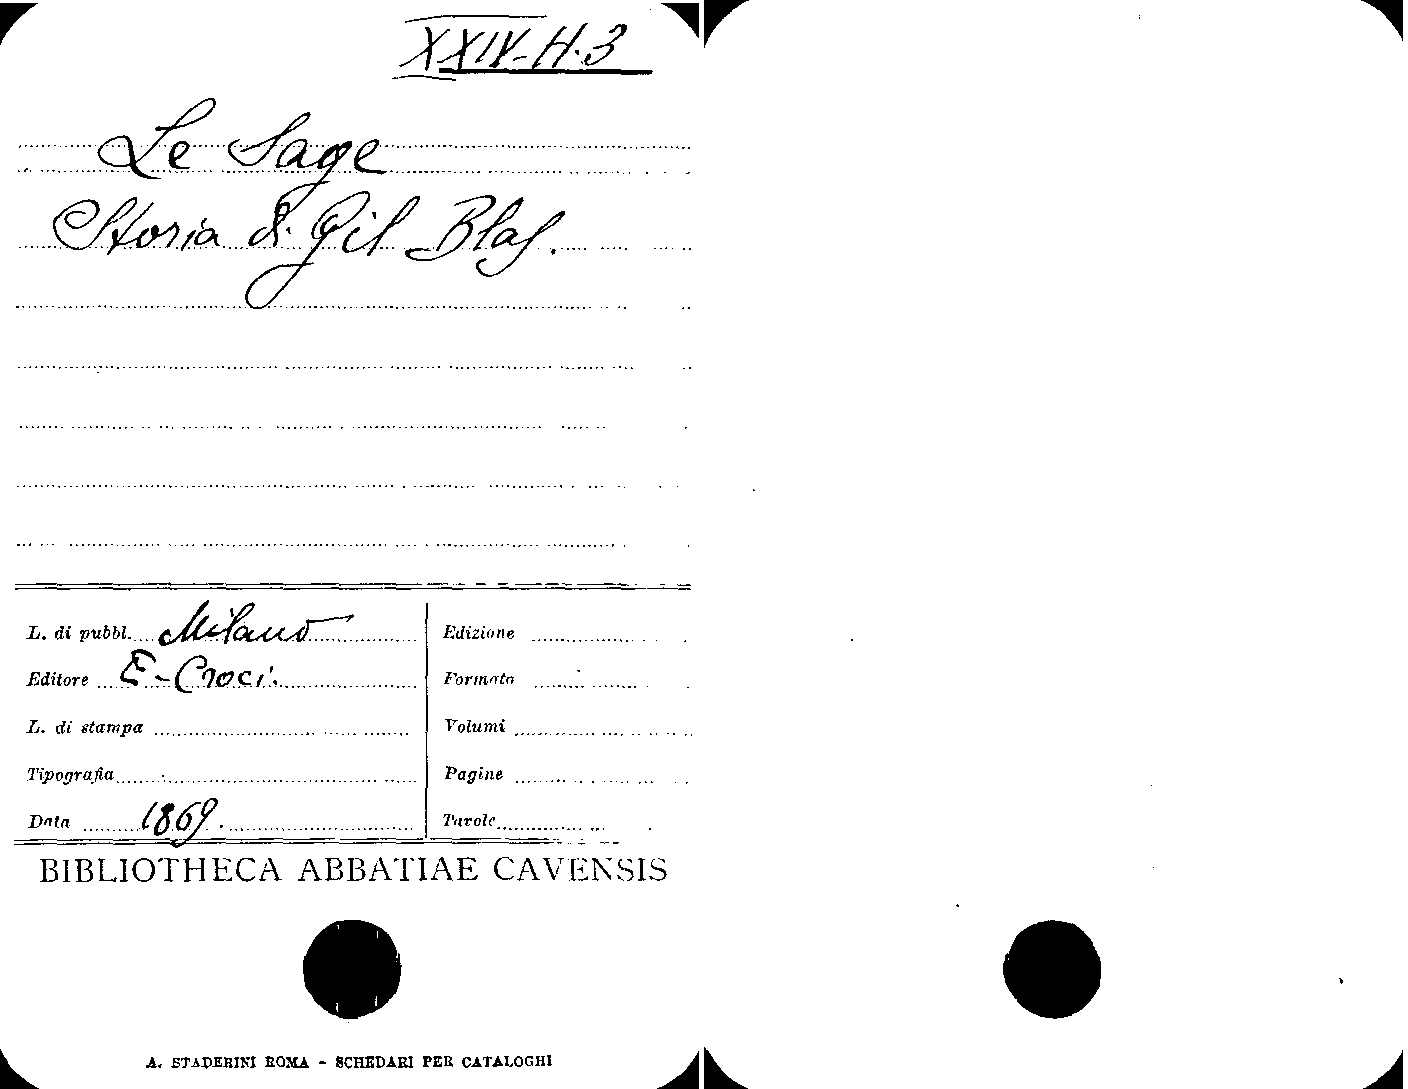 XXIV-H.3
Le Sage
Storia di Gil Blas.
L. di pubbl. Milano
Editore E-Croci.
L. di stampa
Tipografia
Data 1869.
Edizione
Formato
Volumi
Pagine
Tavole
BIBLIOTHECA ABBATIAE CAVENSIS
A. STADERINI ROMA - SCHEDARI PER CATALOGHI